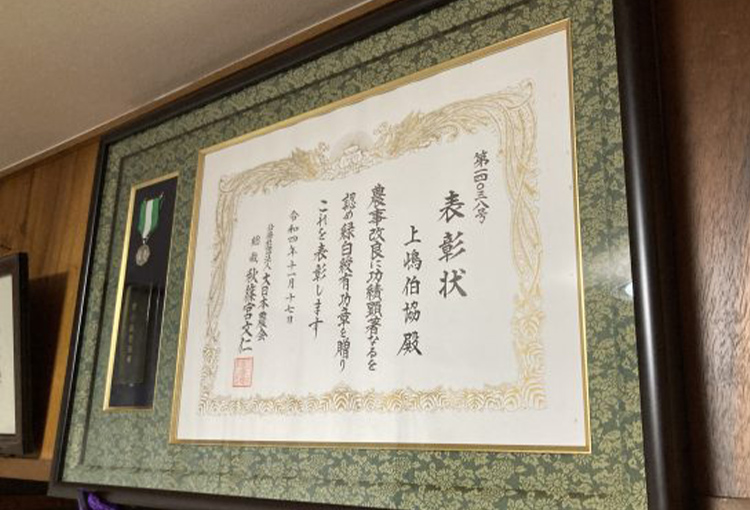 第一四〇三八号
表彰状
上嶋伯協殿
農事改良に功績顕著なるを
認め緑白綬有功章を贈り
これを表彰します
令和四年十一月十七日
公益社団法人大日本農会
総裁秋篠宮文仁